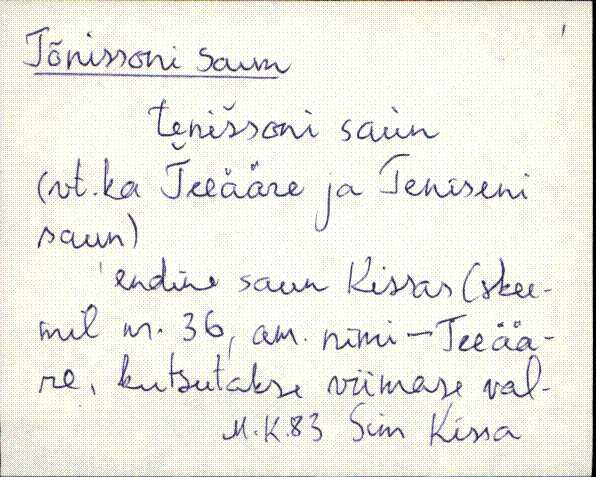 Tõnissoni saun
tenišsoni saùn
(vt. ka Teeääre ja Teniseni
saun)
endine saun Kissas (skee-
mil nr. 36, am. nimi – Teeää-
re, kutsutakse viimase val-
M.K.83 Sim Kissa